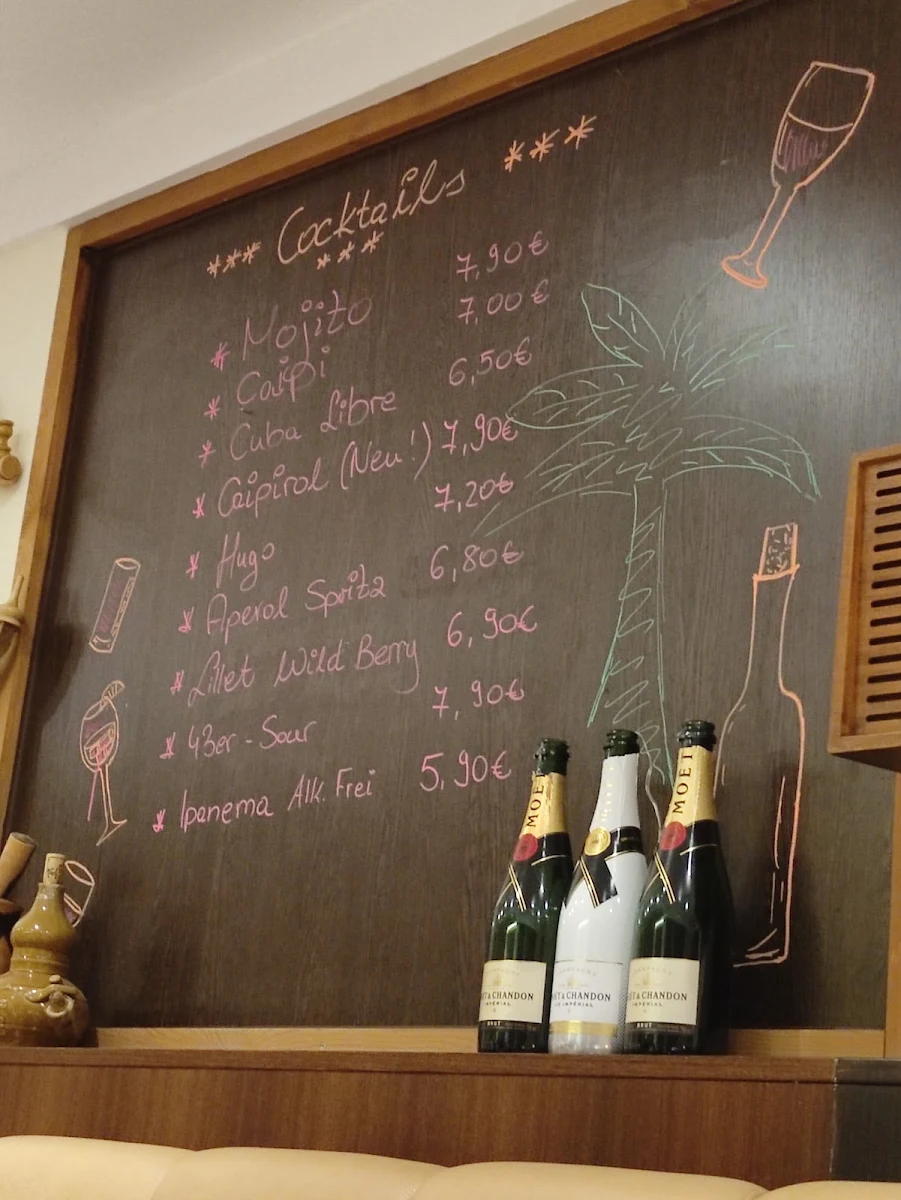 *** Cocktails ***
***
* Mojito 7,90€
* Caipi 7,00€
* Cuba Libre 6,50€
* Caipirol (Neu!) 7,90€
* Hugo 7,20€
* Aperol Spritz 6,80€
* Lillet Wild Berry 6,90€
* 43er-Sour 7,90€
* Ipanema Alk. Frei 5,90€
MOET
MOET
CHAMPAGNE
ET & CHANDON
IMPÉRIAL
BRUT
CHAMPAGNE
ËT & CHANDON
ICE IMPÉRIAL
CHAMPAGNE
ËT & CHANDON
IMPÉRIAL
BRUT